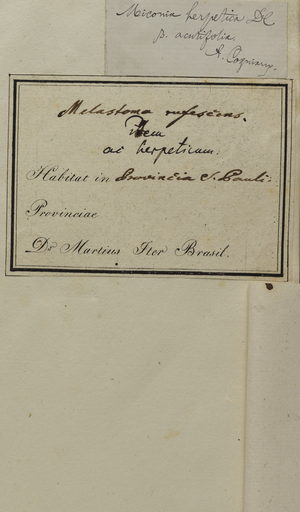 Miconia herpetica DC
β. acutifolia.
A. Cogniaux.
Melastoma rufescens.
Item
ac herpeticum.
Habitat in Provincia S. Pauli.
Provinciae
Dr Martius Iter Brasil.